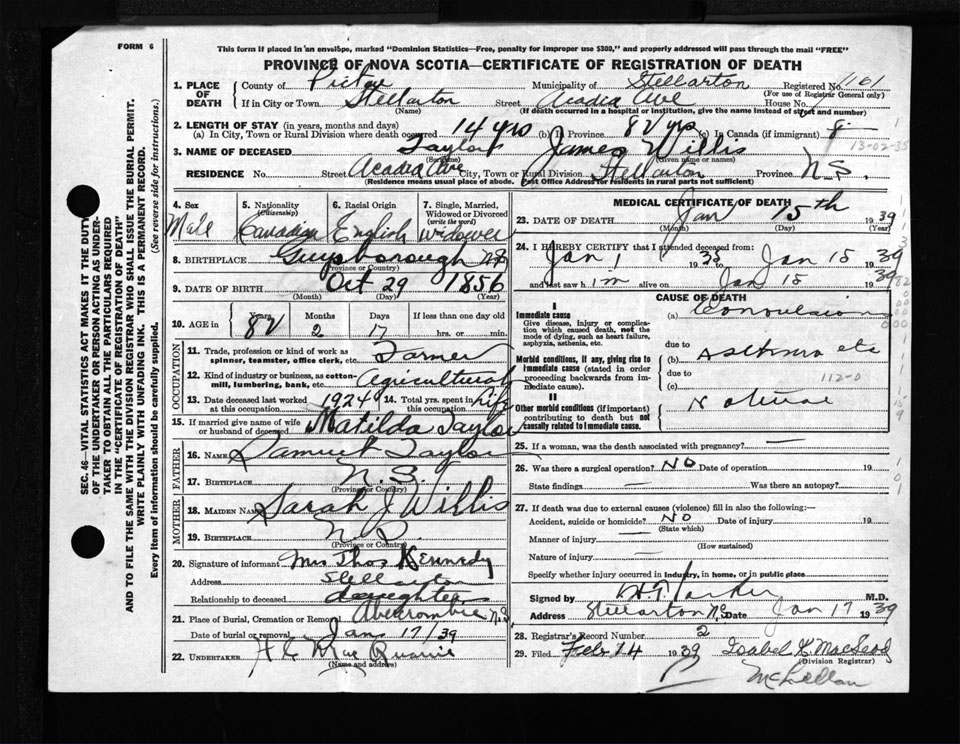 FORM 6
This form if placed in an envelope, marked "Dominion Statistics—Free, penalty for improper use $300," and properly addressed will pass through the mail "FREE"
PROVINCE OF NOVA SCOTIA—CERTIFICATE OF REGISTRATION OF DEATH
1. PLACE OF DEATH County of Pictou Municipality of Stellarton Registered No. 101
(For use of Registrar General only)
If in City or Town Stellarton Street Acadia Ave House No.
(Name) (If death occurred in a hospital or institution, give the name instead of street and number)
2. LENGTH OF STAY (in years, months and days)
(a) In City, Town or Rural Division where death occurred 14 yrs (b) In Province 82 yrs (c) In Canada (if immigrant)
13-02-35
3. NAME OF DECEASED Taylor James Willis
(Surname) (Given name or names)
RESIDENCE No. Street Acadia Ave City, Town or Rural Division Stellarton Province N.S.
(Residence means usual place of abode. Post Office Address for residents in rural parts not sufficient)
4. Sex Male
5. Nationality (Citizenship) Canadian
6. Racial Origin English
7. Single, Married, Widowed or Divorced (write the word) Widower
8. BIRTHPLACE Guysborough N.S.
(Province or Country)
9. DATE OF BIRTH Oct 29 1856
(Month) (Day) (Year)
10. AGE in Years 82 Months 2 Days 17 If less than one day old hrs. or min.
OCCUPATION
11. Trade, profession or kind of work as spinner, teamster, office clerk, etc. Farmer
12. Kind of industry or business, as cotton-mill, lumbering, bank, etc. Agricultural
13. Date deceased last worked at this occupation 1924 14. Total yrs. spent in this occupation life
15. If married give name of wife or husband of deceased Matilda Taylor
FATHER
16. Name Samuel Taylor
17. Birthplace N.S.
(Province or Country)
MOTHER
18. Maiden Name Sarah J Willis
19. Birthplace N.S.
(Province or Country)
20. Signature of informant Mrs Thos Kennedy
Address Stellarton
Relationship to deceased daughter
21. Place of Burial, Cremation or Removal Abercrombie N.S
Date of burial or removal Jan 17/39
22. UNDERTAKER MacQuarrie
(Name and address)
MEDICAL CERTIFICATE OF DEATH
23. DATE OF DEATH Jan 15th 1939
(Month) (Day) (Year)
24. I HEREBY CERTIFY that I attended deceased from:
Jan 1 19 to Jan 15 1939
and last saw him alive on Jan 15 1939
CAUSE OF DEATH
I
Immediate cause
Give disease, injury or complication which caused death, not the mode of dying, such as heart failure, asphyxia, asthenia, etc.
(a) Convulsion
due to
Morbid conditions, if any, giving rise to immediate cause (stated in order proceeding backwards from immediate cause).
(b) Asthma etc
due to
112-0
(c)
II
Other morbid conditions (if important) contributing to death but not causally related to immediate cause.
25. If a woman, was the death associated with pregnancy? —
26. Was there a surgical operation? NO Date of operation 19
State findings — Was there an autopsy?
27. If death was due to external causes (violence) fill in also the following:—
Accident, suicide or homicide? NO Date of injury 19
(State which)
Manner of injury —
(How sustained)
Nature of injury —
Specify whether injury occurred in industry, in home, or in public place
Signed by M.D.
Address Stellarton N.S Date Jan 17 1939
28. Registrar's Record Number 2
29. Filed Feb 14 1939 Isabel K. MacLeod
(Division Registrar)
McLellan
SEC. 46—VITAL STATISTICS ACT MAKES IT THE DUTY
OF THE UNDERTAKER OR PERSON ACTING AS UNDER-
TAKER TO OBTAIN ALL THE PARTICULARS REQUIRED
IN THE "CERTIFICATE OF REGISTRATION OF DEATH"
AND TO FILE THE SAME WITH THE DIVISION REGISTRAR WHO SHALL ISSUE THE BURIAL PERMIT.
WRITE PLAINLY WITH UNFADING INK. THIS IS A PERMANENT RECORD.
Every item of information should be carefully supplied. (See reverse side for instructions.)